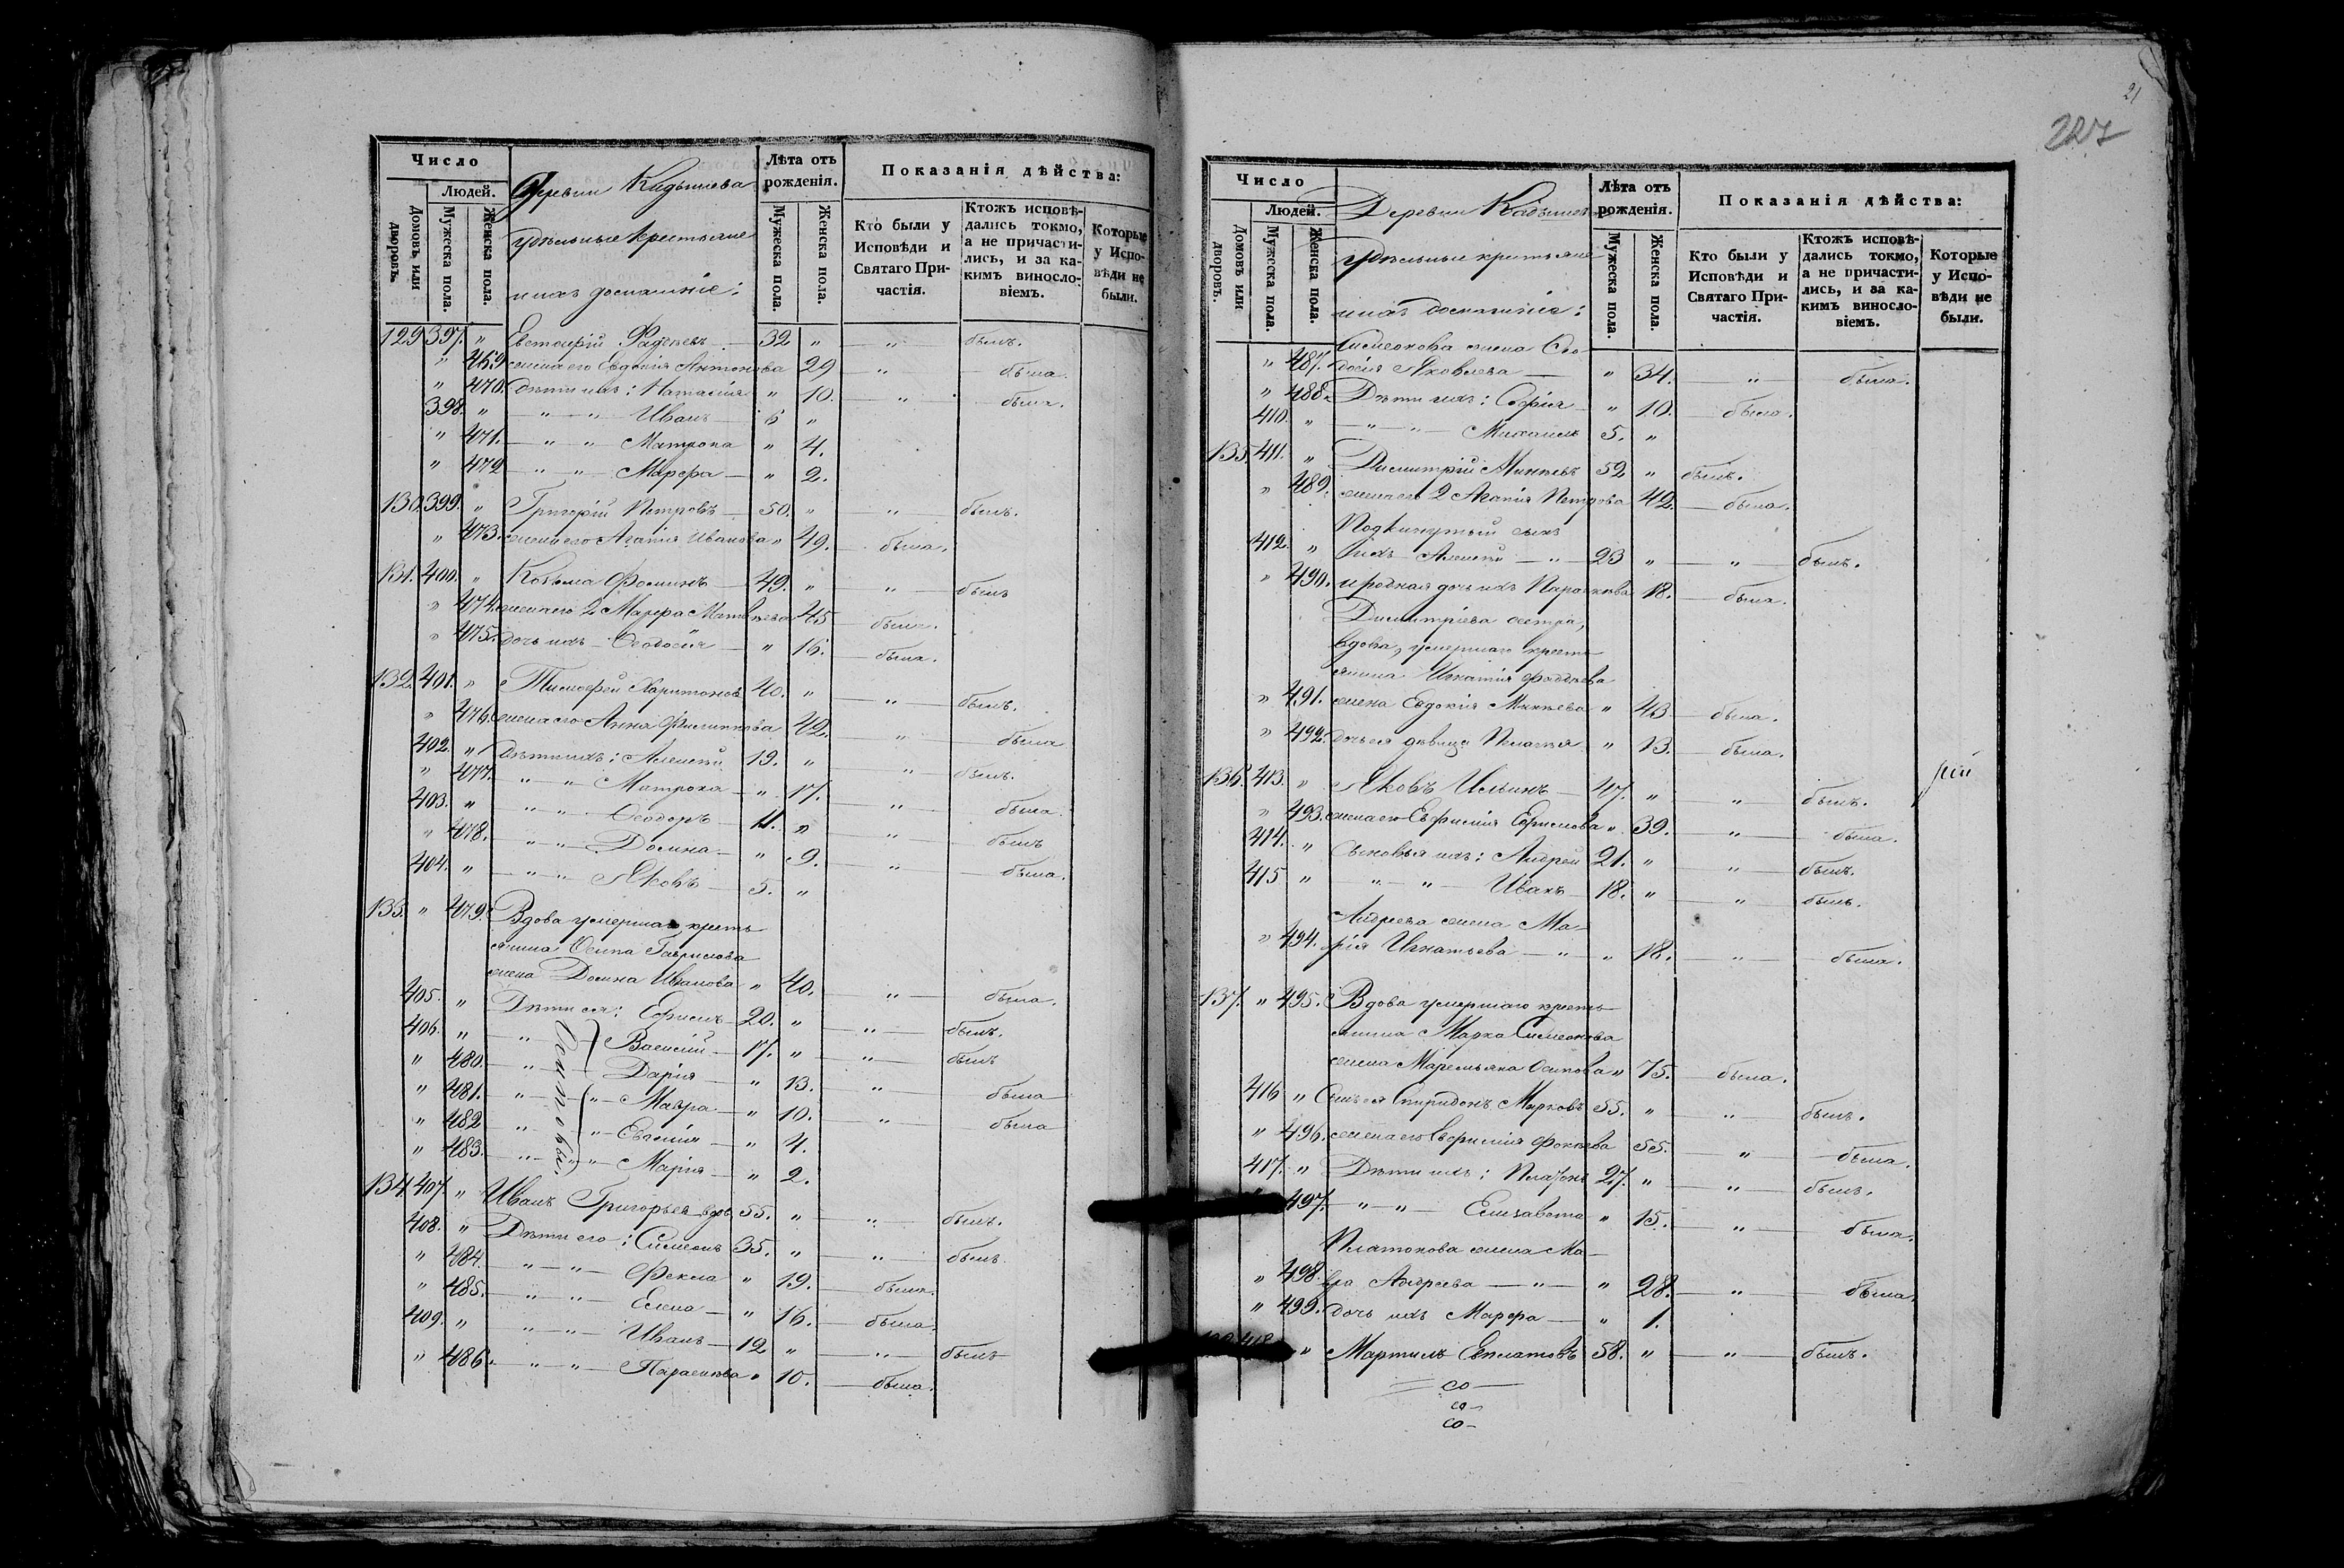 Число
Людей.
Домовъ или дворовъ.
Мужеска пола.
Женска пола.
Деревни Кадышева
удѣльные крестьяне
и ихъ домашніе:
Лѣта отъ рожденія.
Мужеска пола.
Женска пола.
Показанія дѣйства:
Кто были у Исповѣди и Святаго Причастія.
Ктожъ исповѣдались токмо, а не причастились, и за какимъ винословіемъ.
Которые у Исповѣди не были.
129 397. " Евстафій Фадѣевъ 32 " " былъ.
" 469 жена его Евдокія Антонова 29 " была.
" 470. Дѣти ихъ: Наталія " 10. " была.
398. " " " Иванъ 6 "
" 471. " " Матрона " 4.
" 472 " " Марфа " 2.
130. 399. " Григорій Петровъ 50. " " былъ.
" 473. жена его Агапія Иванова " 49. была.
131. 400. " Козьма Фоминъ 49. " " былъ
" 474. жена его 2 Марфа Матвѣева 45 была.
" 475. дочь ихъ Ѳеодосія " 16. была.
132. 401. " Тимофей Харитоновъ 40. " " былъ.
" 476. жена его Анна Филиппова 42. " была
402. " Дѣти ихъ: Алексѣй 19. " " былъ.
" 477. " " Матрона " 17. " была.
403. " " " Ѳеодоръ 11. " " былъ
" 478. " " Домна " 9. " была.
404. " " " Яковъ 5. "
133. " 479. Вдова умершаго кресть-
янина Осипа Гаврилова
жена Домна Иванова " 40. " была.
405. " Дѣти ея: Ефимъ 20. " " былъ.
406. " " Василій 17. " " былъ
" 480. " Дарія " 13. " была
" 481. " " Мавра " 10. " была
" 482 " " Евгенія " 4.
" 483. " " Марія " 2.
Осиповы.
134. 407. " Иванъ Григорьевъ вдов. 55. " " былъ.
408. " Дѣти его: Симеонъ 35. " " былъ.
" 484. " " Фекла " 19. была.
" 485. " " Елена " 16. была.
409. " " " Иванъ 12 " " былъ
" 486. " " Параскева " 10. была.
21
227
Число
Людей.
Домовъ или дворовъ.
Мужеска пола.
Женска пола.
Деревни Кадышева
удѣльные крестьяне
и ихъ домашніе:
Лѣта отъ рожденія.
Мужеска пола.
Женска пола.
Показанія дѣйства:
Кто были у Исповѣди и Святаго Причастія.
Ктожъ исповѣдались токмо, а не причастились, и за какимъ винословіемъ.
Которые у Исповѣди не были.
Симеонова жена Ѳео-
" 487. досія Яковлева " 34. " была.
" 488. Дѣти ихъ: Софія " 10. была.
410. " " " Михаилъ 5. "
135. 411. " Димитрій Минѣевъ 52 " былъ.
" 489. жена его 2 Агапія Петрова 42. была.
Подкинутый сынъ
412. " ихъ Алексѣй " 23 " " былъ.
" 490. и родная дочь ихъ Параскева 18. была.
Димитріева сестра,
вдова, умершаго кресть-
янина Игнатія Фаддѣева
" 491. жена Евдокія Минѣева " 43. была.
" 492. дочь ея дѣвица Пелагія " 13. была.
136. 413. " Яковъ Ильинъ 47. " " былъ.
рей
" 493. жена его Евфимія Ефимова " 39. " была.
414. " Сыновья ихъ: Андрей 21. " " былъ.
415 " " " Иванъ 18. " " былъ.
Андреева жена Ма-
" 494. рія Игнатьева " " 18. " была.
137. " 495. Вдова умершаго кресть-
янина Марка Симеонова
жена Маремьяна Осипова " 75. была.
416 " Сынъ ея Спиридонъ Марковъ 55. " " былъ.
" 496. жена его Евфимія Фокѣева 55. " была.
417. " Дѣти ихъ: Платонъ 27. " " былъ.
497. " " Елизавета " 15. " была.
Платонова жена Ма-
" 498. вра Андреева " " 28. " была.
" 499. дочь ихъ Марфа " 1.
138. 418 " Мартинъ Евплатовъ 58. " " былъ.